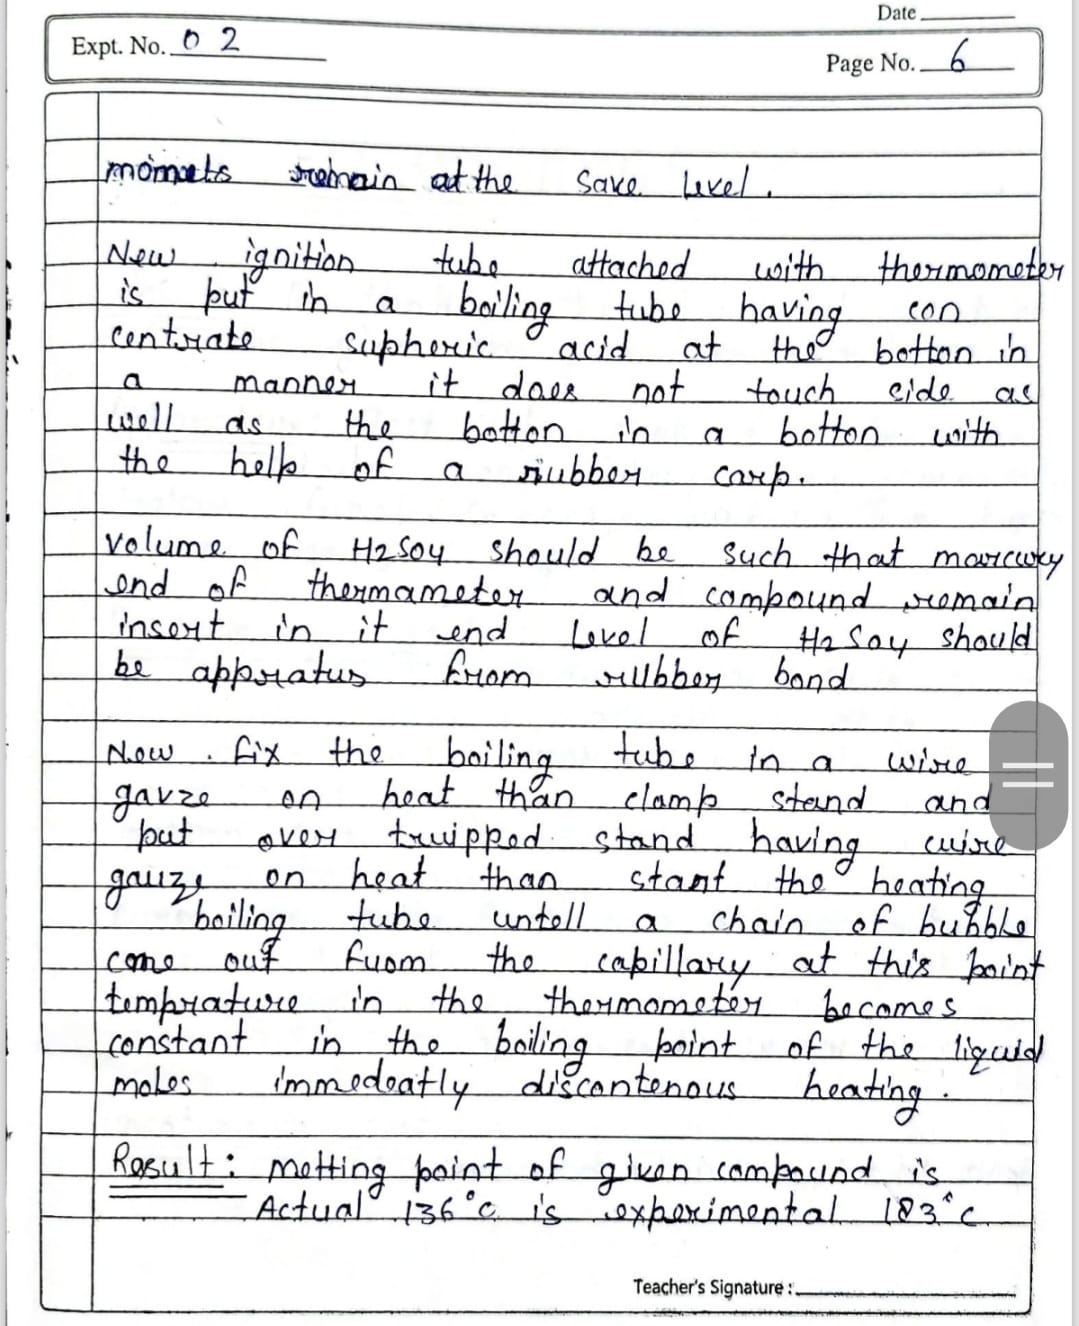 Date
Expt. No. 02
Page No. 6
remain at the save level.
New ignition tube attached with thermometer
is put in a boiling tube having con
centrate supheric acid at the botton in
a manner it does not touch side as
well as the botton in a botton with
the help of a rubber carp.
volume of H2SO4 should be such that marcury
end of thermameter and compound remain
insert in it end level of H2SO4 should
be appratus from rubber band
Now fix the boiling tube in a wire
gavze on heat than clamp stand and
put over trwipped stand having wire
gauze on heat than stant the heating
boiling tube untell a chain of bubble
come out from the capillary at this point
temprature in the thermometer becomes
constant in the boiling point of the liquid
moles immedeatly discontenous heating.
Result: melting point of given compound is
Actual 136°c is experimental 183°c.
Teacher's Signature :